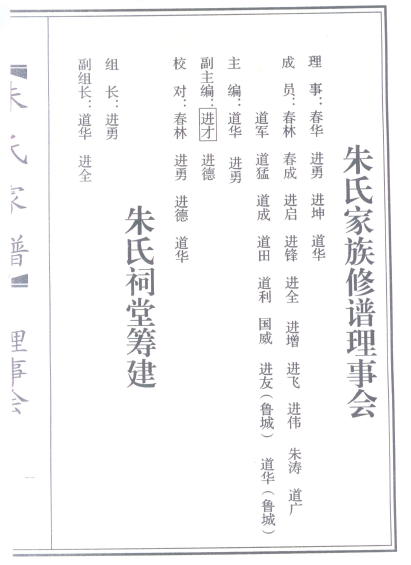 朱氏家族修谱理事会
理事：春华 进勇 进坤 道华
成员：春林 春成 进启 进锋 进全 进增 进飞 进伟 朱涛 道广
道军 道猛 道成 道田 道利 国威 进友（鲁城） 道华（鲁城）
主编：道华 进勇
副主编：进才 进德
校对：春林 进勇 进德 道华
朱氏祠堂筹建
组长：进勇
副组长：道华 进全
【朱氏家谱】 理事会
一